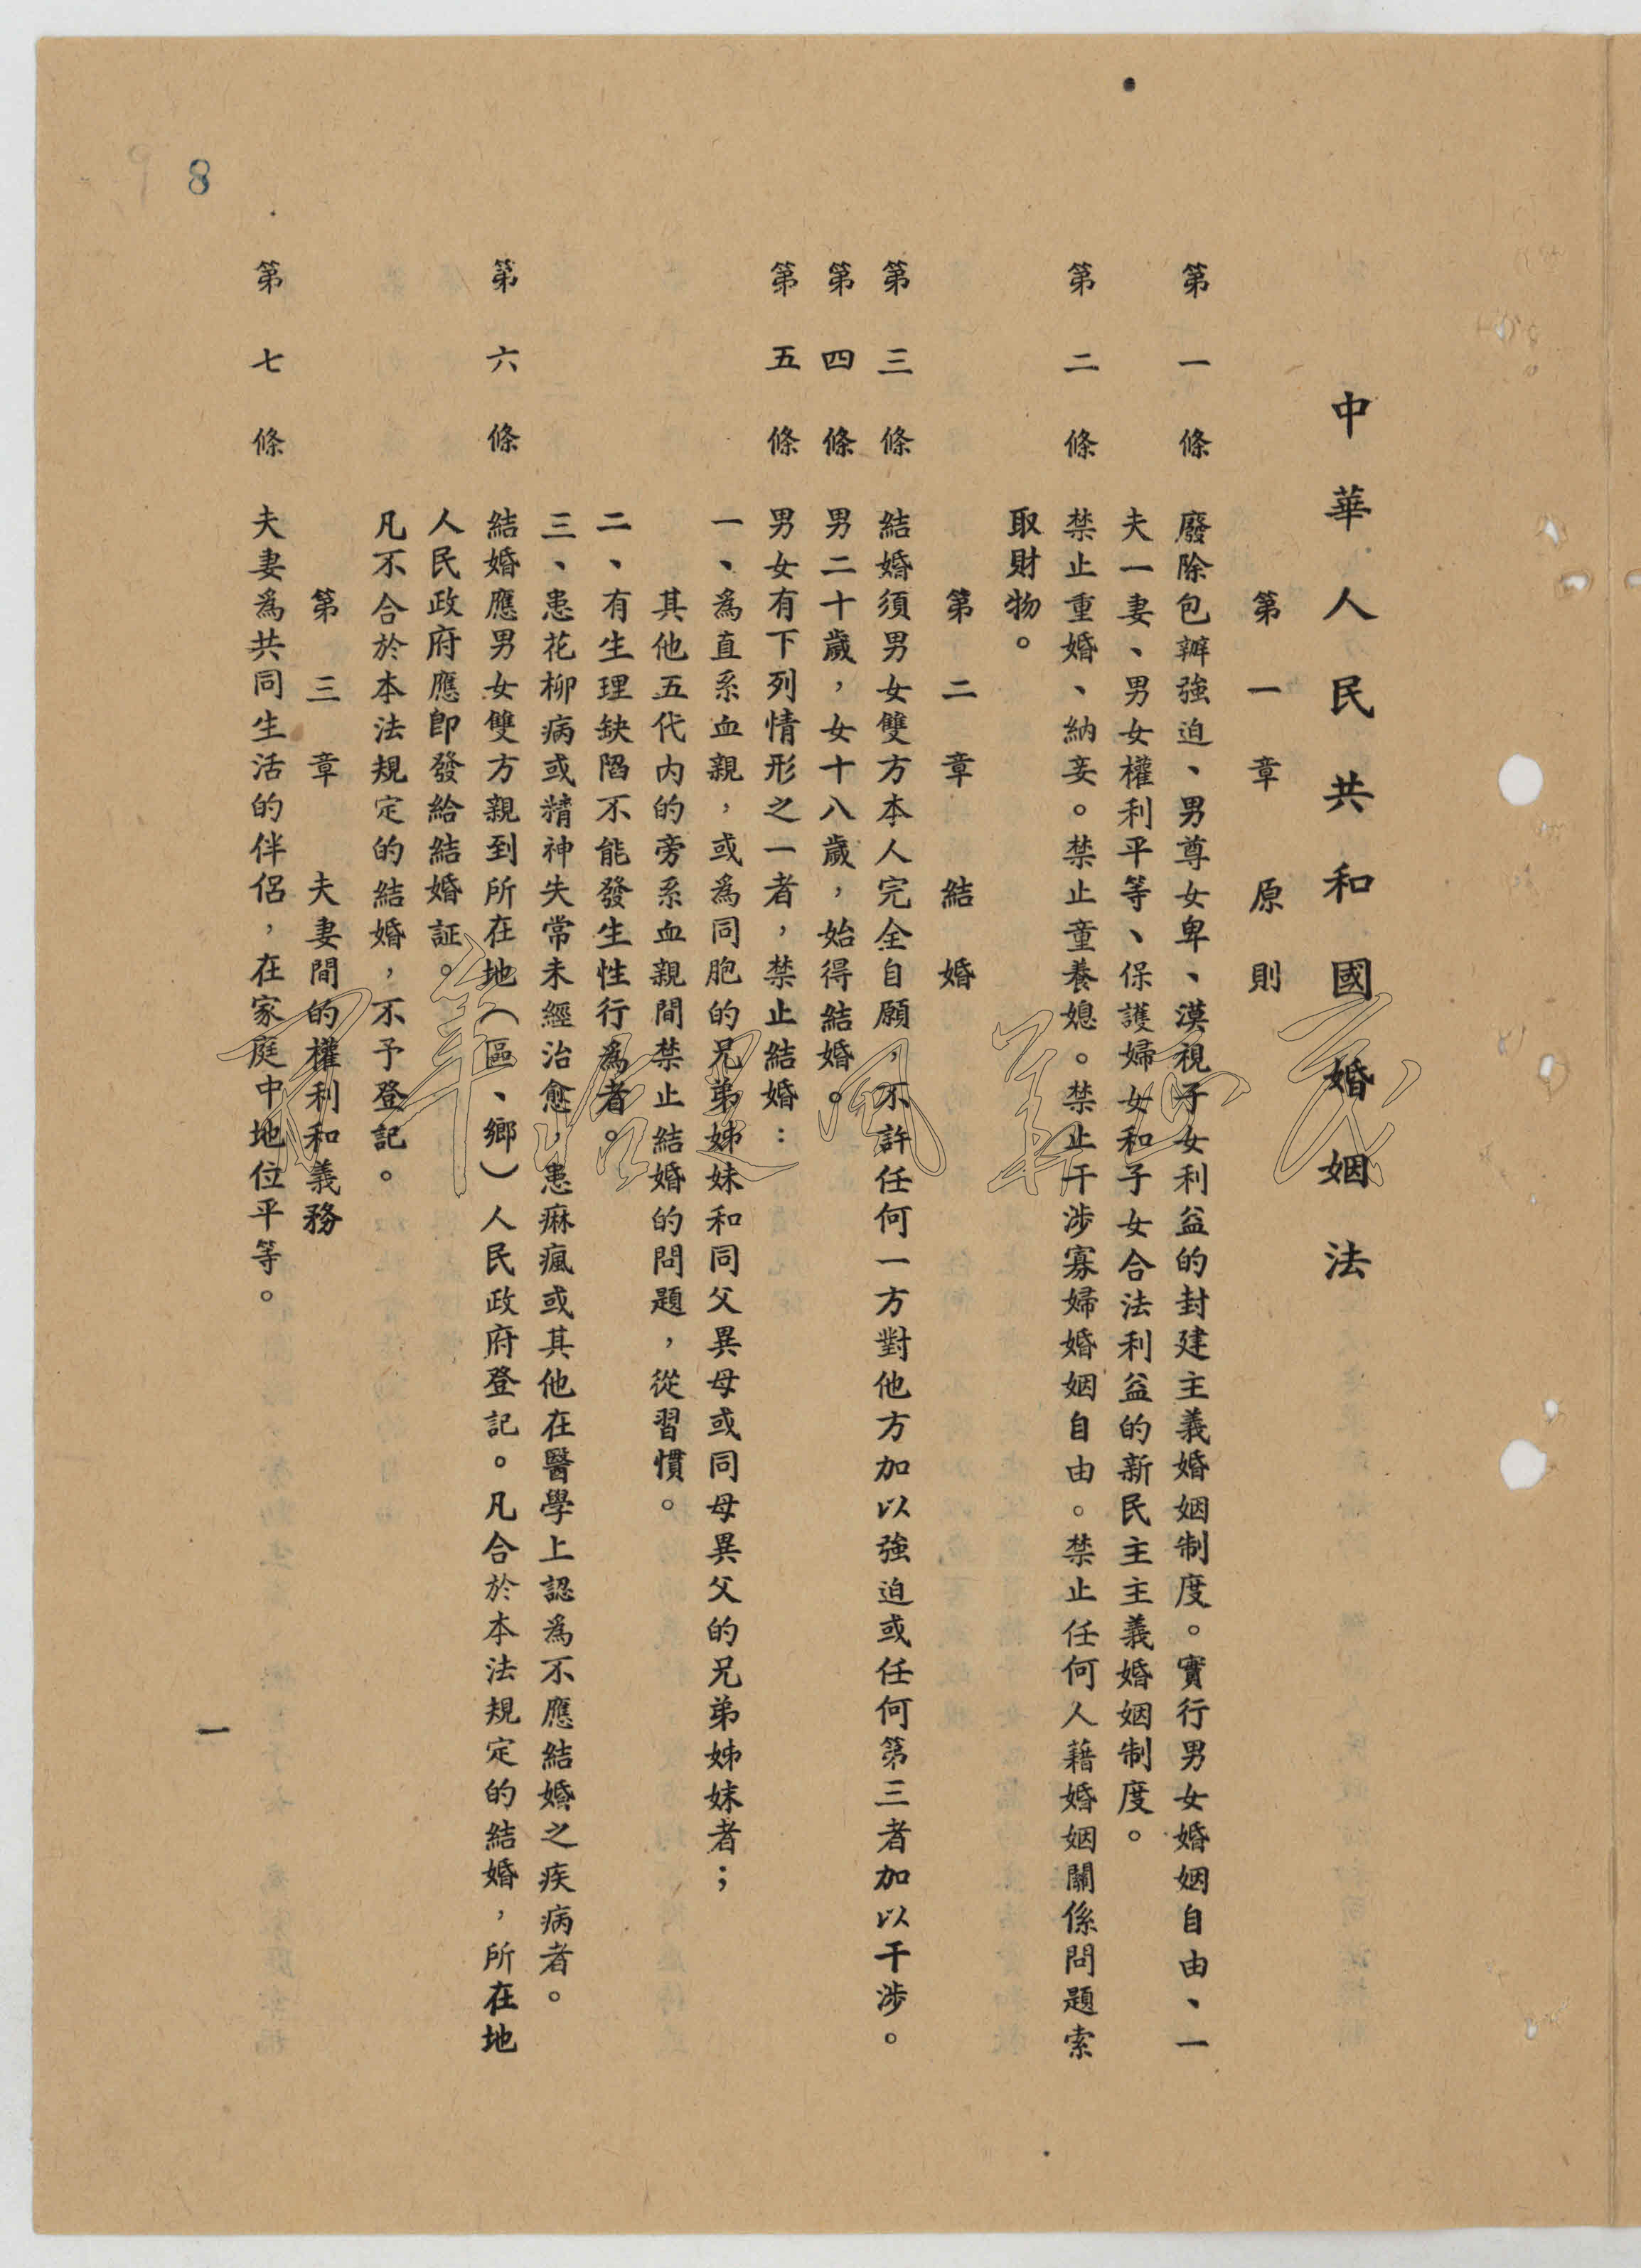 中華人民共和國婚姻法
第一章 原則
第一條 廢除包辦強迫、男尊女卑、漠視子女利益的封建主義婚姻制度。實行男女婚姻自由、一
夫一妻、男女權利平等、保護婦女和子女合法利益的新民主主義婚姻制度。
第二條 禁止重婚、納妾。禁止童養媳。禁止干涉寡婦婚姻自由。禁止任何人藉婚姻關係問題索
取財物。
第二章 結婚
第三條 結婚須男女雙方本人完全自願,不許任何一方對他方加以強迫或任何第三者加以干涉。
第四條 男二十歲,女十八歲,始得結婚。
第五條 男女有下列情形之一者,禁止結婚:
一、為直系血親,或為同胞的兄弟姊妹和同父異母或同母異父的兄弟姊妹者;
其他五代內的旁系血親間禁止結婚的問題,從習慣。
二、有生理缺陷不能發生性行為者。
三、患花柳病或精神失常未經治愈,患痳瘋或其他在醫學上認為不應結婚之疾病者。
第六條 結婚應男女雙方親到所在地(區、鄉)人民政府登記。凡合於本法規定的結婚,所在地
人民政府應即發給結婚証。
凡不合於本法規定的結婚,不予登記。
第三章 夫妻間的權利和義務
第七條 夫妻為共同生活的伴侶,在家庭中地位平等。
一
8